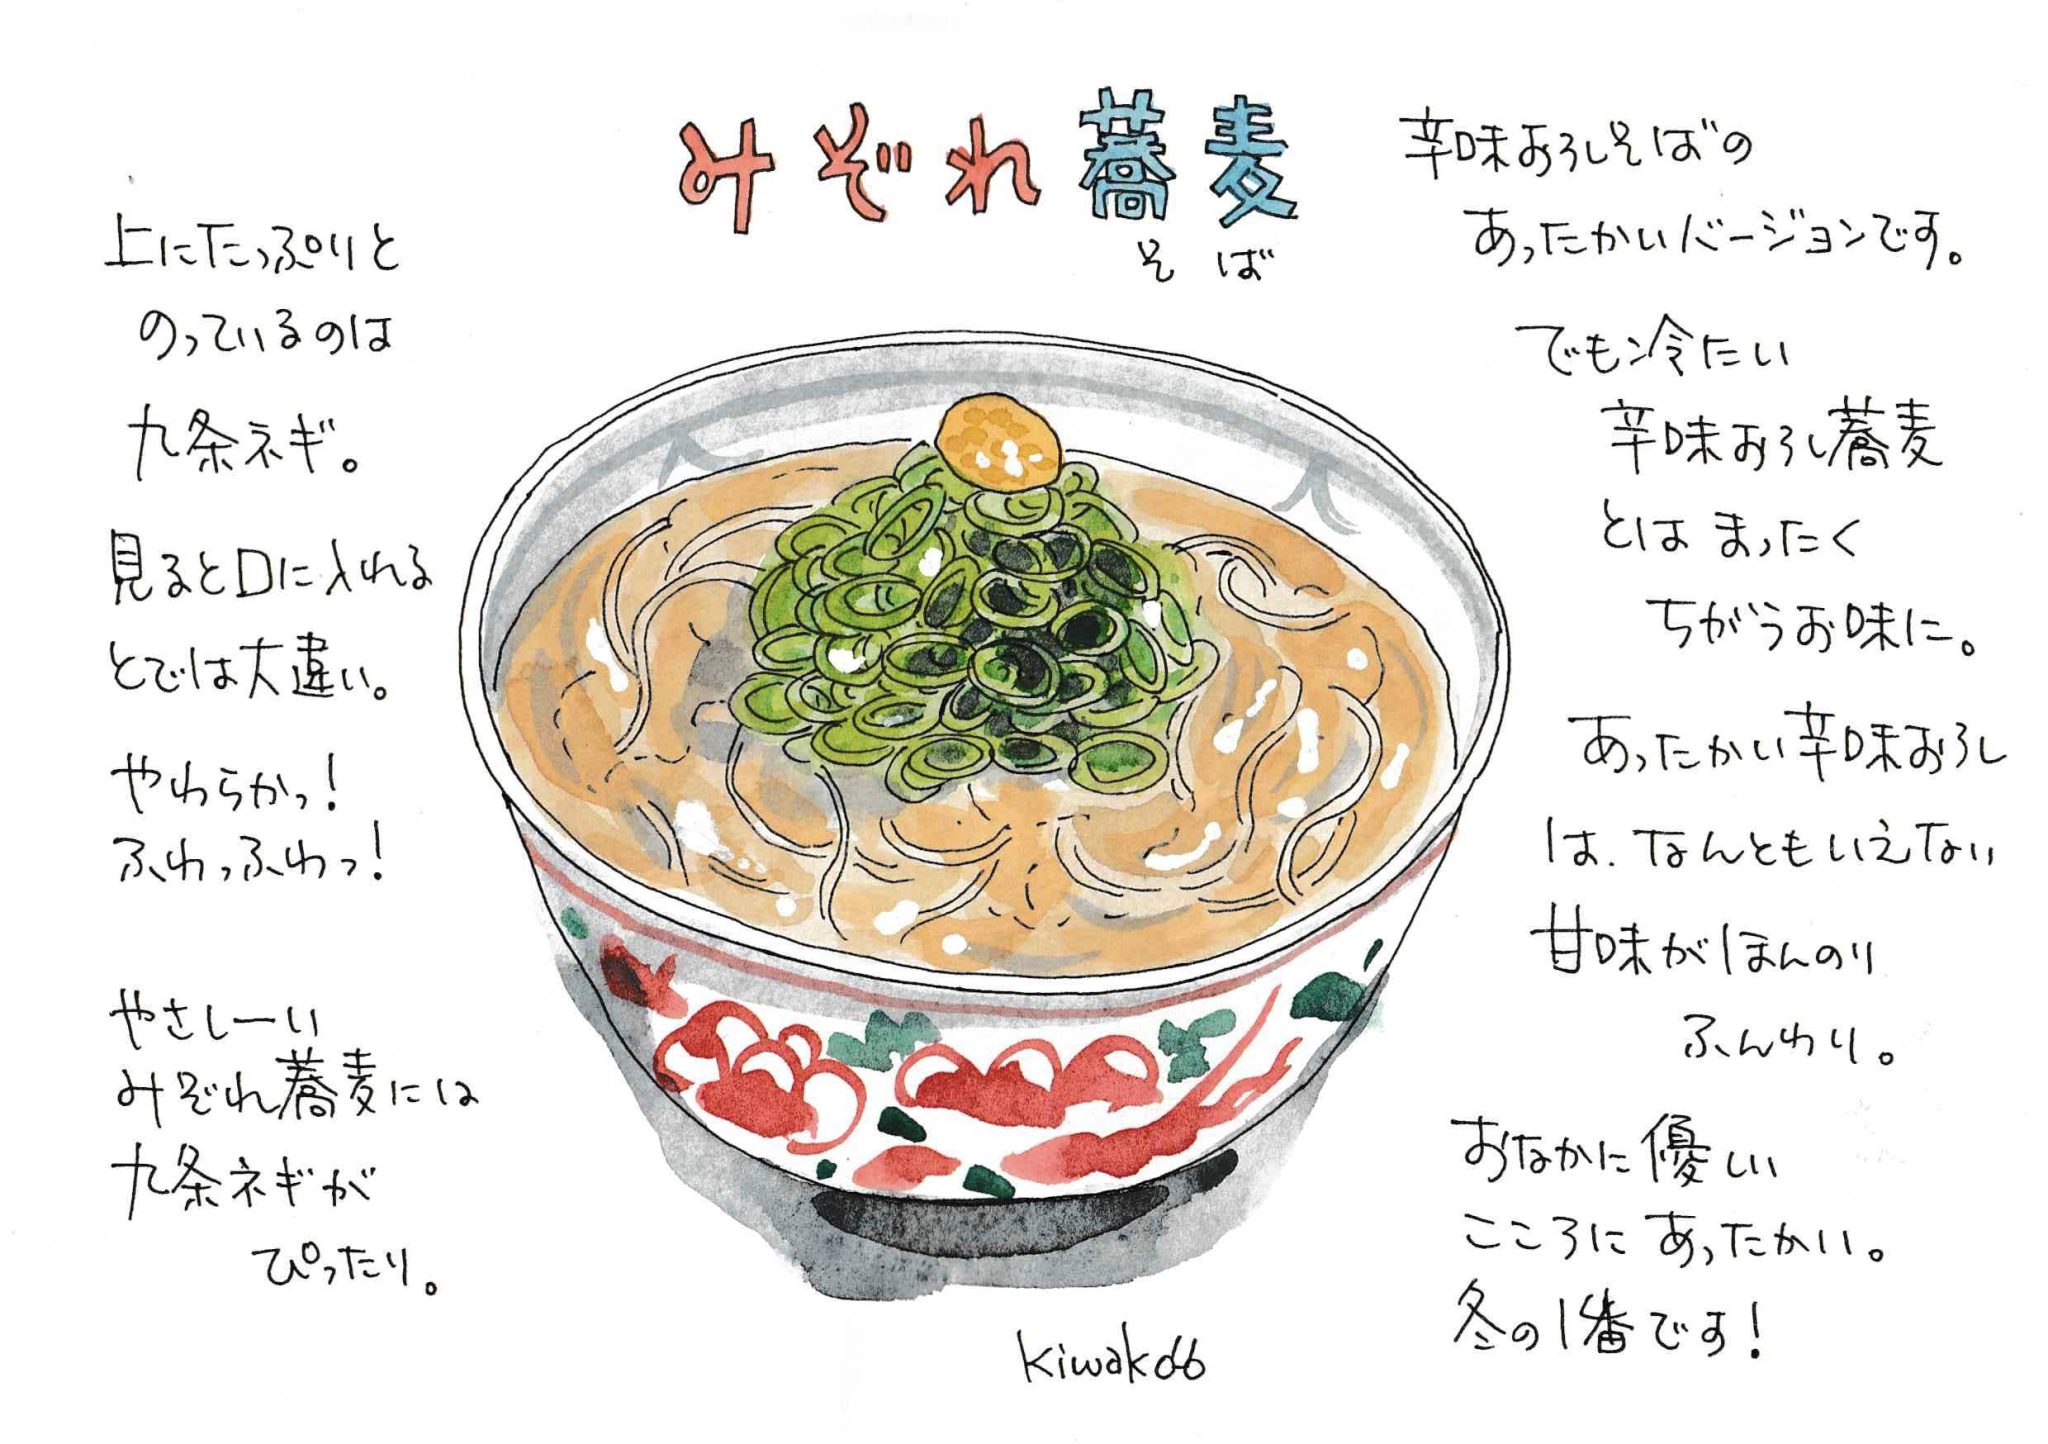 みぞれ蕎麦
そば
辛味おろしそばの
あったかいバージョンです。
でも冷たい
辛味おろし蕎麦
とは まったく
ちがうお味に。
あったかい辛味おろし
は、なんともいえない
甘味がほんのり
ふんわり。
おなかに優しい
こころに あったかい。
冬の1番です!
上にたっぷりと
のっているのは
九条ネギ。
見ると口に入れる
とでは大違い。
やわらかっ!
ふわっふわっ!
やさしーい
みぞれ蕎麦には
九条ネギが
ぴったり。
kiwako06